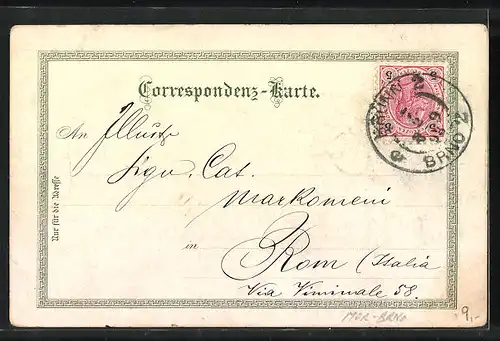 Correspondenz-Karte.
5 5
BRÜNN
BRNO 2
An Illustr
Sigv. Cat.
Markomeni
in Rom (Italia
Via Viminale 58.
Nur für die Adresse
MOR-BRNO
9,-